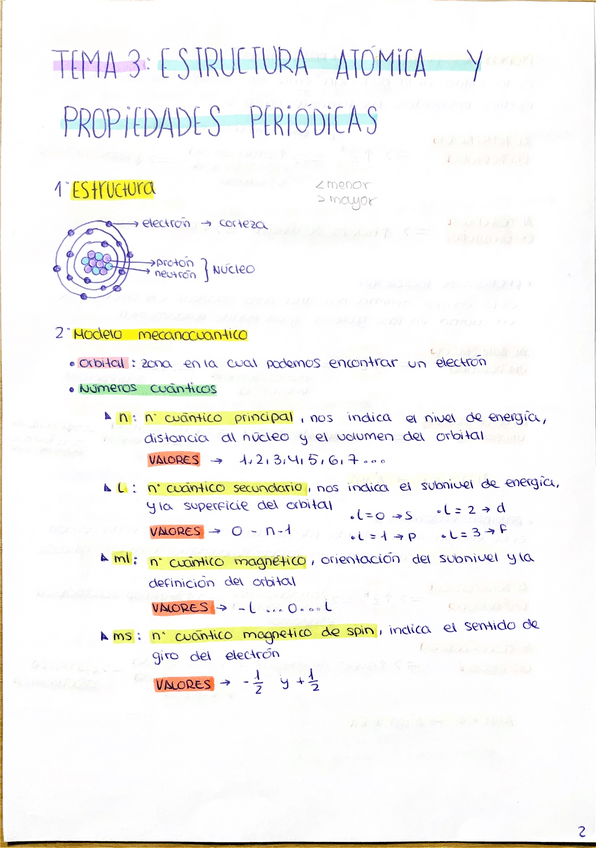 TEMA 3: ESTRUCTURA ATÓMICA Y
PROPIEDADES PERIÓDICAS
1· Estructura
< menor
> mayor
electrón → corteza
protón
neutrón } NÚCLEO
2· Modelo mecanocuantico
• Orbital : zona en la cual podemos encontrar un electrón
• Números cuánticos
n : nº cuántico principal , nos indica el nivel de energía,
distancia al núcleo y el volumen del orbital
VALORES → 1, 2, 3, 4, 5, 6, 7 ...
L : nº cuántico secundario , nos indica el subnivel de energía,
y la superficie del orbital
• L = 0 → S • L = 2 → d
VALORES → 0 - n-1
• L = 1 → P • L = 3 → F
ml : nº cuántico magnético , orientación del subnivel y la
definición del orbital
VALORES → - L ... 0 ... L
ms : nº cuántico magnetico de spin , indica el sentido de
giro del electrón
VALORES → - 1/2 y + 1/2
2